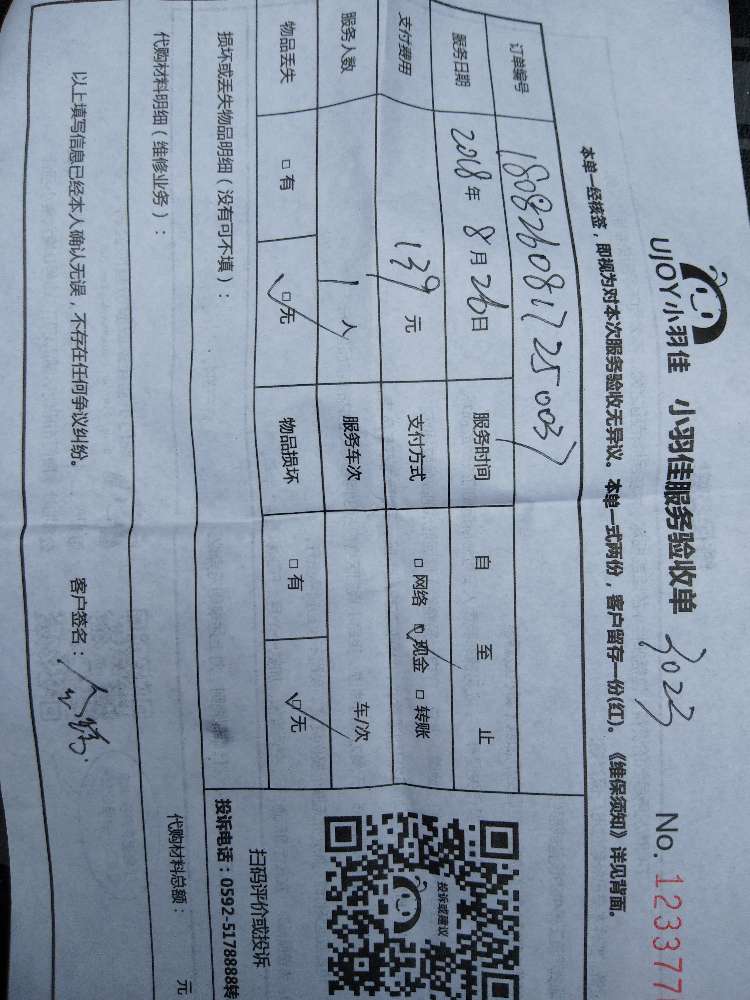 UJOY小羽佳 小羽佳服务验收单 3023 No. 123377
本单一经核签，即视为对本次服务验收无异议。本单一式两份，客户留存一份(红)。《维保须知》详见背面。
订单编号 180826081725003
服务日期 2018年8月26日 服务时间 自 至 止
支付费用 139元 支付方式 □网络 □现金 □转账
服务人数 1人 服务车次 车/次
物品丢失 □有 □无 物品损坏 □有 □无
损坏或丢失物品明细（没有可不填）：
代购材料明细（维修业务）： 代购材料总额： 元
以上填写信息已经本人确认无误，不存在任何争议纠纷。 客户签名：
投诉或建议
扫码评价或投诉
投诉电话：0592-5178888转